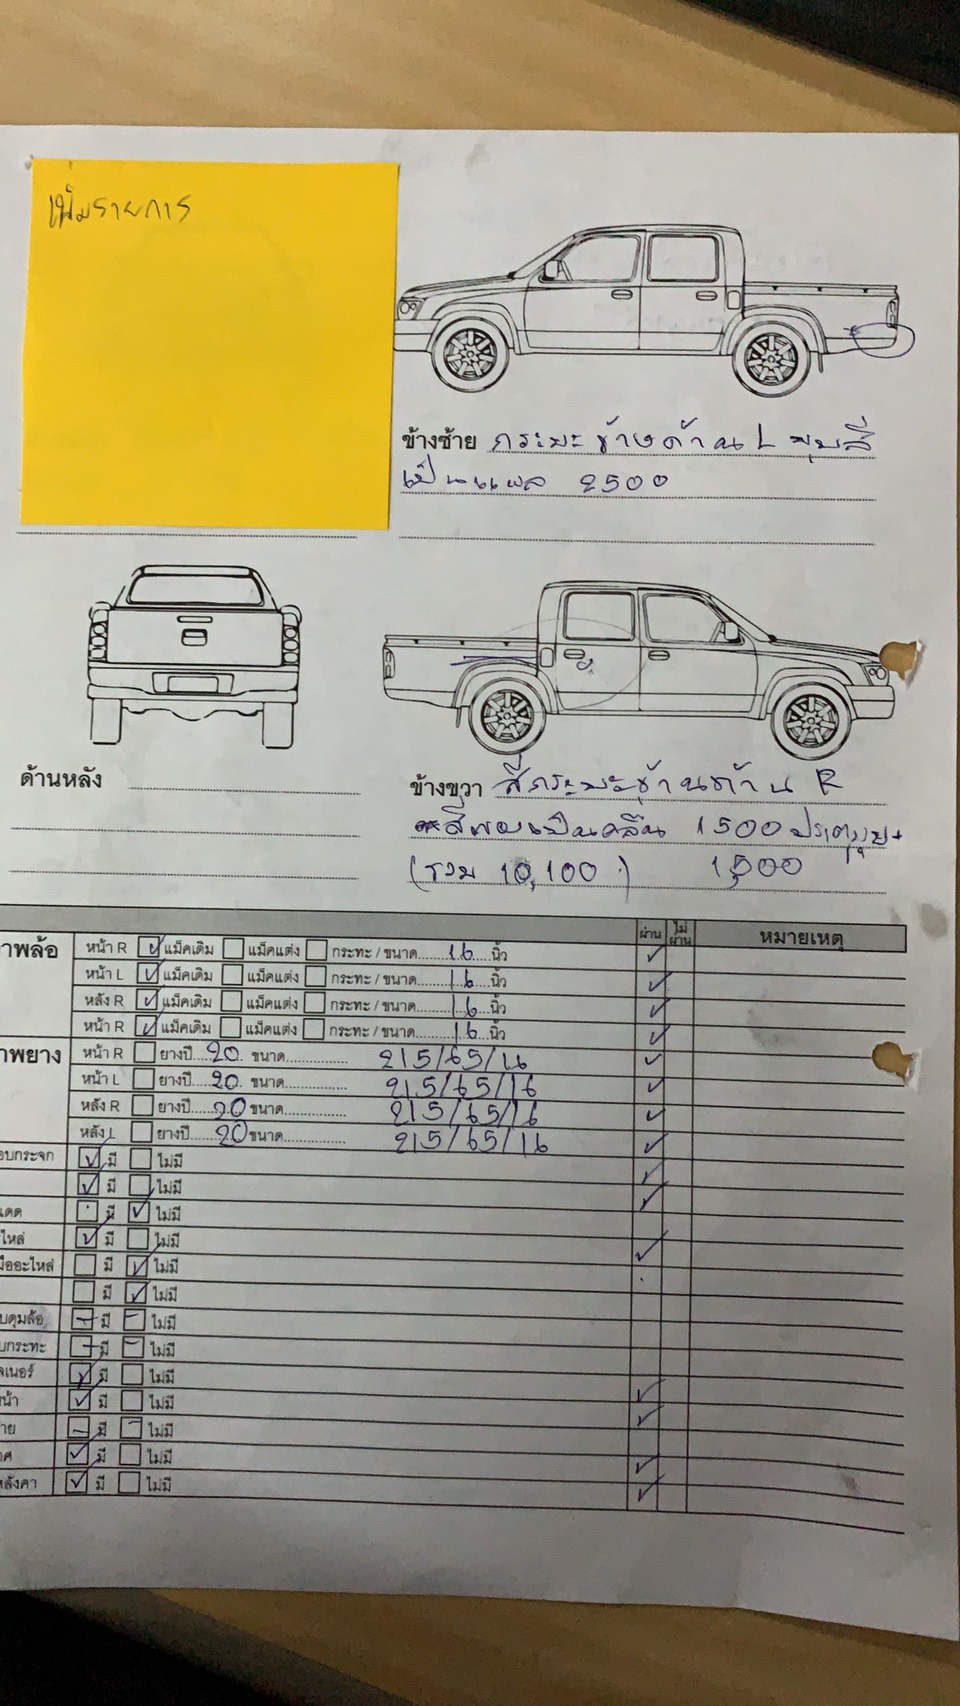 เพิ่มรายการ
ข้างซ้าย กระบะข้างด้าน L บุบสี
เป็นแผล 2500
ด้านหลัง
ข้างขวา สีกระบะข้างด้าน R
สีพองเป็นคลื่น 1500 ประตูบุบ+
(รวม 10,100 :) 1,500
ผ่าน ไม่ผ่าน หมายเหตุ
าพล้อ หน้า R แม็คเดิม แม็คแต่ง กระทะ / ขนาด 16 นิ้ว
หน้า L แม็คเดิม แม็คแต่ง กระทะ / ขนาด 16 นิ้ว
หลัง R แม็คเดิม แม็คแต่ง กระทะ / ขนาด 16 นิ้ว
หน้า R แม็คเดิม แม็คแต่ง กระทะ / ขนาด 16 นิ้ว
าพยาง หน้า R ยางปี 20 ขนาด 215/65/16
หน้า L ยางปี 20 ขนาด 215/65/16
หลัง R ยางปี 20 ขนาด 215/65/16
หลัง L ยางปี 20 ขนาด 215/65/16
อบกระจก มี ไม่มี
มี ไม่มี
แดด มี ไม่มี
ไหล่ มี ไม่มี
มืออะไหล่ มี ไม่มี
มี ไม่มี
บดุมล้อ มี ไม่มี
บกระทะ มี ไม่มี
ลเนอร์ มี ไม่มี
น้า มี ไม่มี
าย มี ไม่มี
าศ มี ไม่มี
หลังคา มี ไม่มี